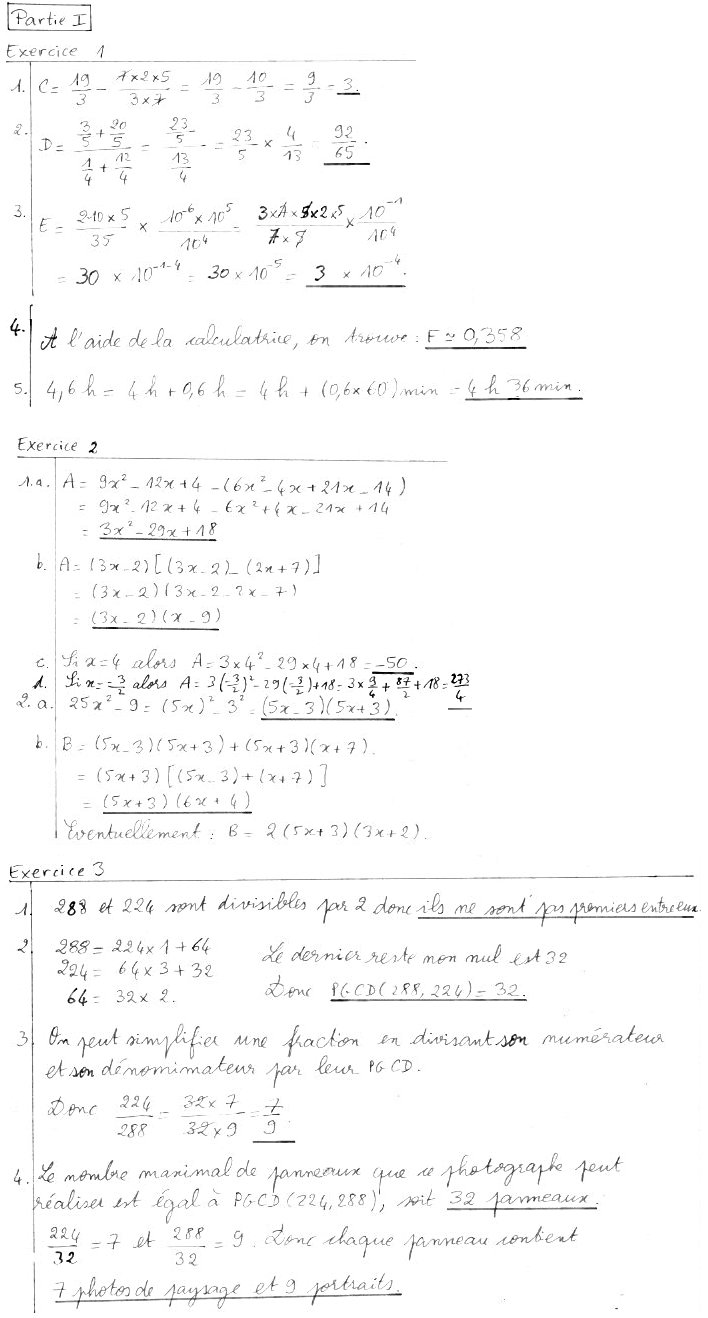 Partie I
Exercice 1
1. C = 19/3 - (7×2×5)/(3×7) = 19/3 - 10/3 = 9/3 = 3.
2. D = (3/5 + 20/5)/(1/4 + 12/4) = (23/5)/(13/4) = 23/5 × 4/13 = 92/65.
3. E = (210×5)/35 × (10⁻⁶×10⁵)/10⁴ = (3×7×5×2×5)/(7×5) × 10⁻¹/10⁴
= 30 × 10⁻¹⁻⁴ = 30×10⁻⁵ = 3 × 10⁻⁴.
4. A l'aide de la calculatrice, on trouve : F ≃ 0,358
5. 4,6 h = 4 h + 0,6 h = 4 h + (0,6×60) min = 4 h 36 min.
Exercice 2
1.a. A = 9x² - 12x + 4 - (6x² - 4x + 21x - 14)
= 9x² - 12x + 4 - 6x² + 4x - 21x + 14
= 3x² - 29x + 18
b. A = (3x-2)[(3x-2) - (2x+7)]
= (3x-2)(3x-2-2x-7)
= (3x-2)(x-9)
c. Si x=4 alors A = 3×4² - 29×4 + 18 = -50.
d. Si x = -3/2 alors A = 3(-3/2)² - 29(-3/2) + 18 = 3×9/4 + 87/2 + 18 = 273/4
2. a. 25x² - 9 = (5x)² - 3² = (5x-3)(5x+3).
b. B = (5x-3)(5x+3) + (5x+3)(x+7).
= (5x+3)[(5x-3) + (x+7)]
= (5x+3)(6x+4)
Eventuellement : B = 2(5x+3)(3x+2).
Exercice 3
1. 288 et 224 sont divisibles par 2 donc ils ne sont pas premiers entre eux.
2. 288 = 224×1 + 64 Le dernier reste non nul est 32
224 = 64×3 + 32
64 = 32×2. Donc PGCD(288, 224) = 32.
3. On peut simplifier une fraction en divisant son numérateur
et son dénomimateur par leur PGCD.
Donc 224/288 = (32×7)/(32×9) = 7/9.
4. Le nombre maximal de panneaux que ce photographe peut
réaliser est égal à PGCD(224,288), soit 32 panneaux.
224/32 = 7 et 288/32 = 9. Donc chaque panneau contient
7 photos de paysage et 9 portraits.